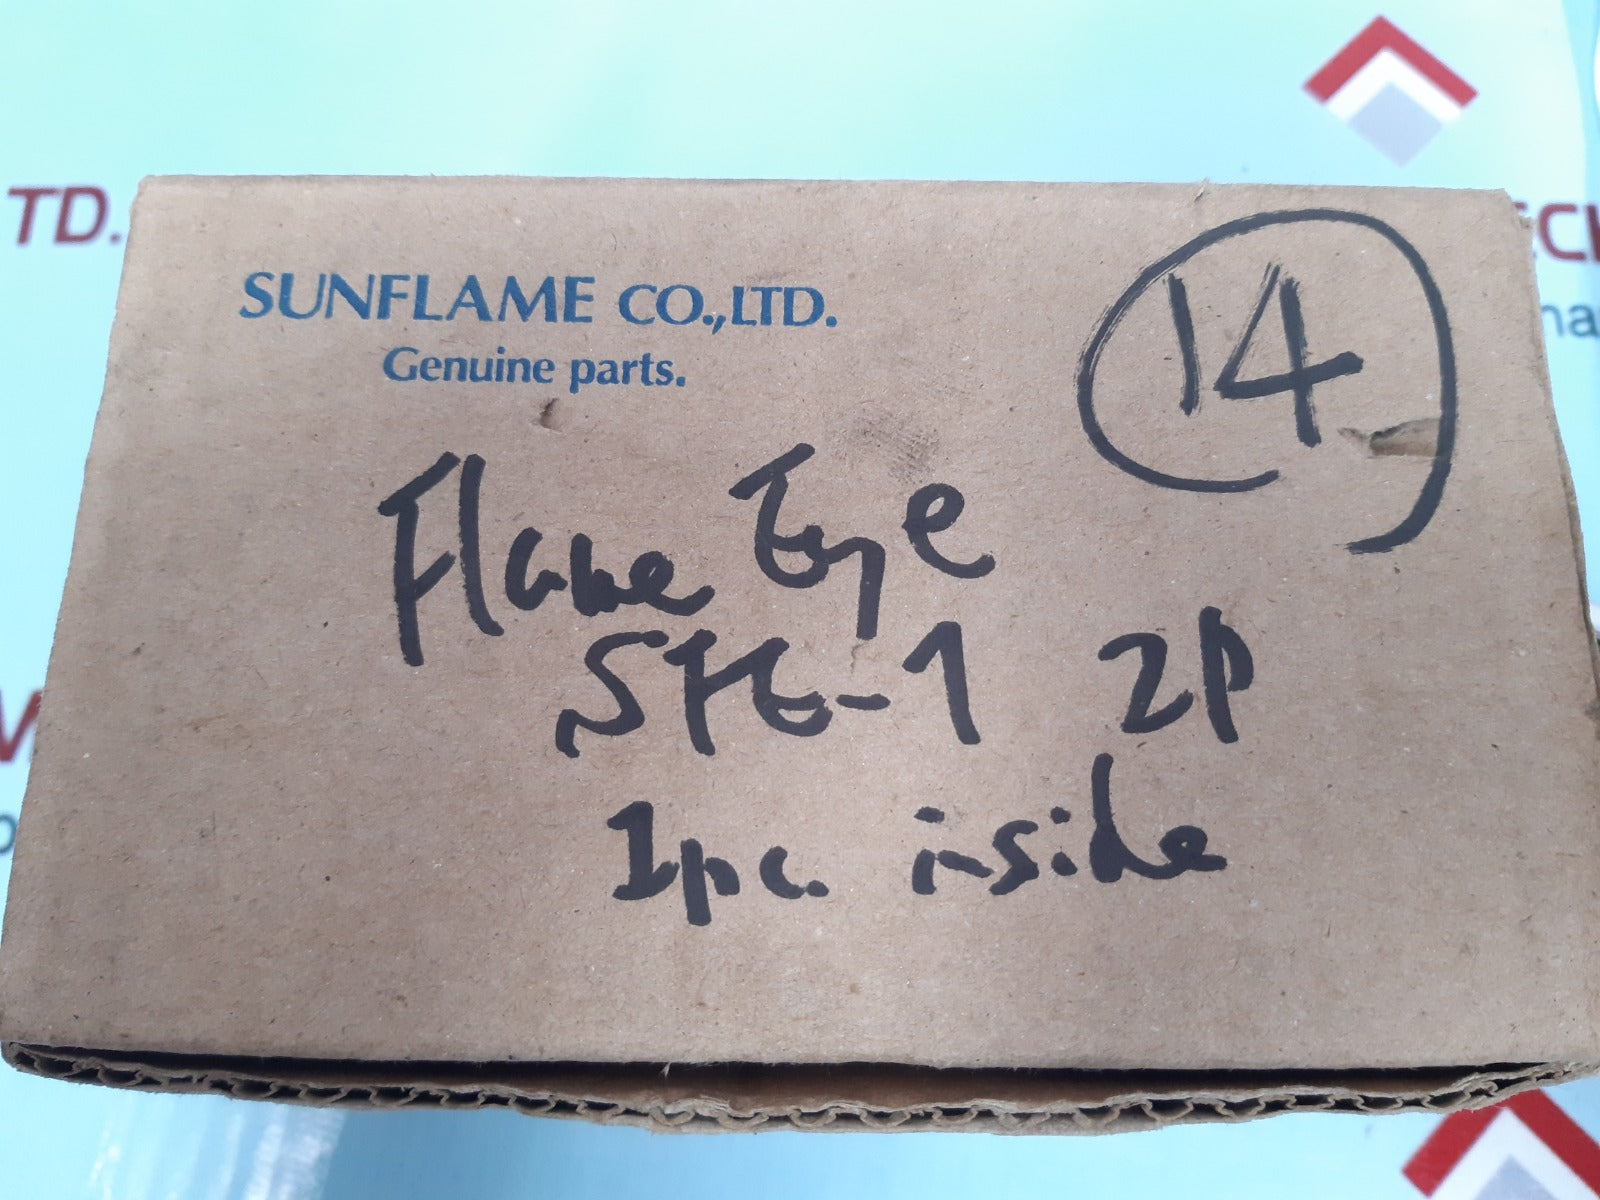 SUNFLAME CO.,LTD.
Genuine parts.
14
Flame Eye
SFE-1 2P
1pc. inside
TD.